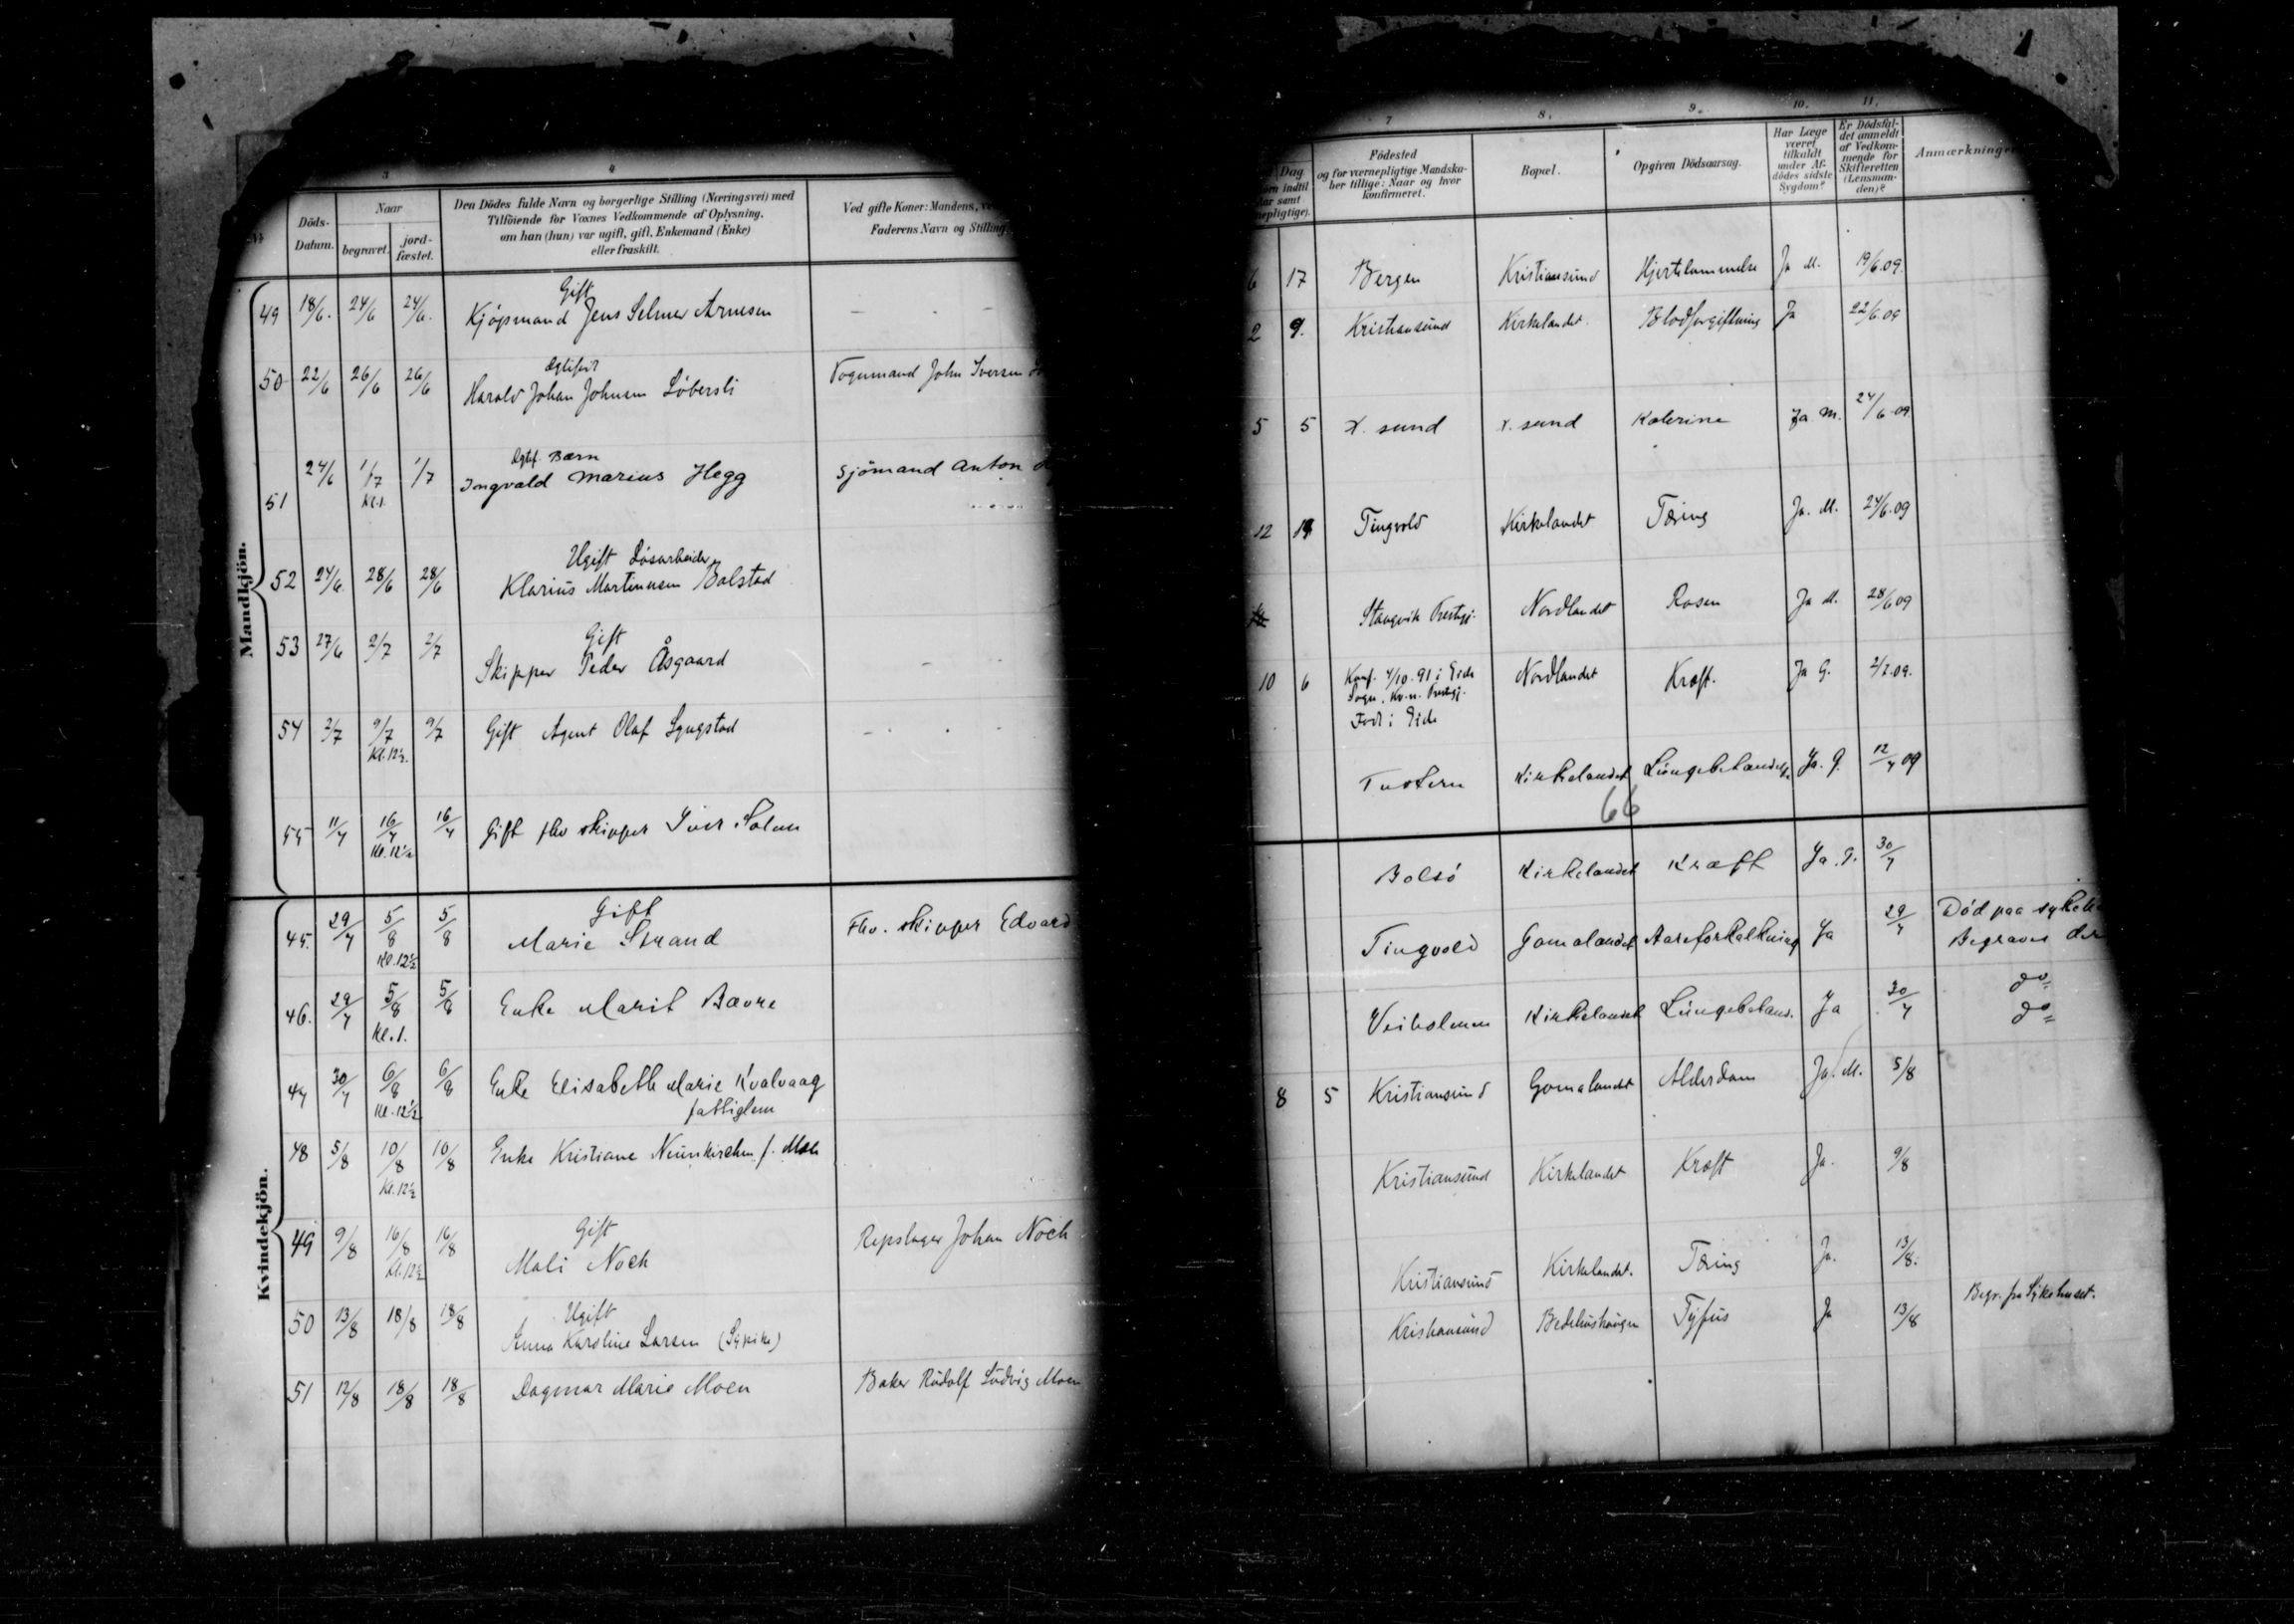 3
4
Döds-
Datum.
Naar
begravet.
jord-
fæstet.
Den Dödes fulde Navn og borgerlige Stilling (Næringsvei) med
Tilföiende for Voxnes Vedkommende af Oplysning,
om han (hun) var ugift, gift, Enkemand (Enke)
eller fraskilt.
Ved gifte Koner: Mandens,
Faderens Navn og Stilling
Mandkjön.
Gift
49 18/6. 24/6 24/6. Kjøpmand Jens Selmer Arnesen - - -
Ægtefød
50 22/6 26/6 26/6 Harald Johan Johnsen Löbersli Vognmand John Iversen
Ægtef. Barn
51 24/6 1/7 1/7 Ingvald Marius Hegg Sjömand Anton
Kl. 1.
Ugift Løsarbeider
52 24/6. 28/6 28/6 Klarius Martinusen Bolstad
Gift
53 27/6 2/7 2/7 Skipper Peder Åsgaard -
54 2/7 9/7 9/7 Gift Agent Olaf Lyngstad - - -
Kl. 12½.
55 11/7 16/7 16/7 Gift fhv skipper Iver Solem
Kl. 12½
Kvindekjön.
Gift
45. 29/7 5/8 5/8 Marie Strand Fhv. skipper Edvard
Kl. 12½
46. 29/7 5/8 5/8 Enke Marit Bævre
Kl. 1.
47 30/7 6/8 6/8 Enke Elisabeth Marie Kvalvaag
Kl. 12½ fattiglem
48 5/8 10/8 10/8 Enke Kristiane Neunkirchen f.
Kl. 12½
Gift
49 9/8 16/8 16/8 Mali Noch Repslager Johan Noch
Kl. 12½
Ugift
50 13/8 18/8 18/8 Anna Karoline Larsen (Sypike)
51 12/8 18/8 18/8 Dagmar Marie Moen Baker Rudolf Ludvig Moen
7
8.
9.
10.
11.
Dag
indtil
samt
Födested
og for værnepligtige Mandska-
ber tillige: Naar og hvor
konfirmeret.
Bopæl.
Opgiven Dödsaarsag.
Har Læge
været
tilkaldt
under Af-
dödes sidste
Sygdom?
Er Dödsfal-
det anmeldt
af Vedkom-
mende for
Skifteretten
(Lensman-
den)?
Anmærkninger
6 17 Bergen Kristiansund Hjertelammelse Ja M. 19/6.09.
2 9. Kristiansund Kirkelandet. Blodforgiftning Ja 22/6.09
5 5 X. sund X. sund Kolerine Ja M. 24/6-09
12 Tingvold Kirkelandet Tæring Ja. M. 24/6.09
Stangvik Prestgj. Nordlandet Rosen Ja M. 28/6 09
10 6 Konf. 4/10.91 i Eide Nordlandet Kræft. Ja G. 2/7.09.
Sogn. Kv.n. Prestgj.
Født i Eide
Tustern Kirkelandet Lungebetændelse Ja. G. 12/7 09
66
Bolsö Kirkelandet Kræft Ja. G. 30/7
Tingvold Gomalandet Aareforkalkning Ja 29/7 Död paa
Begraves der
Veiholmen Kirkelandet Lungebetænd. Ja 30/7 do
do
8 5 Kristiansund Gomalandet Alderdom Ja. M. 5/8
Kristiansund Kirkelandet Kræft Ja. 9/8
Kristiansund Kirkelandet. Tæring Ja. 13/8.
Kristiansund Bedehushaugen Tyfus Ja 13/8 Begr. fra Sykehuset.